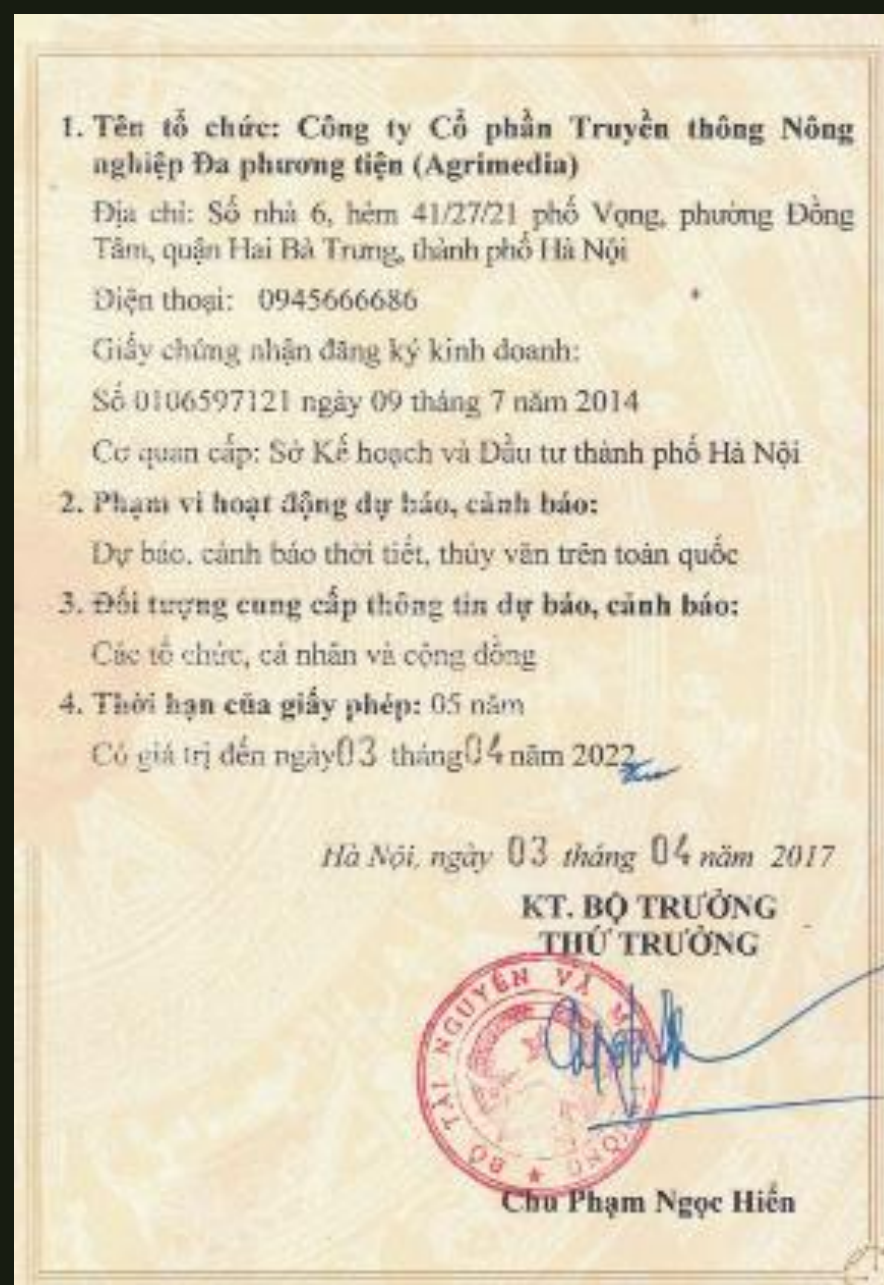 1. Tên tổ chức: Công ty Cổ phần Truyền thông Nông
nghiệp Đa phương tiện (Agrimedia)
Địa chỉ: Số nhà 6, hẻm 41/27/21 phố Vọng, phường Đồng
Tâm, quận Hai Bà Trưng, thành phố Hà Nội
Điện thoại: 0945666686
Giấy chứng nhận đăng ký kinh doanh:
Số 0106597121 ngày 09 tháng 7 năm 2014
Cơ quan cấp: Sở Kế hoạch và Đầu tư thành phố Hà Nội
2. Phạm vi hoạt động dự báo, cảnh báo:
Dự báo, cảnh báo thời tiết, thủy văn trên toàn quốc
3. Đối tượng cung cấp thông tin dự báo, cảnh báo:
Các tổ chức, cá nhân và cộng đồng
4. Thời hạn của giấy phép: 05 năm
Có giá trị đến ngày 03 tháng 04 năm 2022
Hà Nội, ngày 03 tháng 04 năm 2017
KT. BỘ TRƯỞNG
THỨ TRƯỞNG
BỘ TÀI NGUYÊN VÀ
Chu Phạm Ngọc Hiển